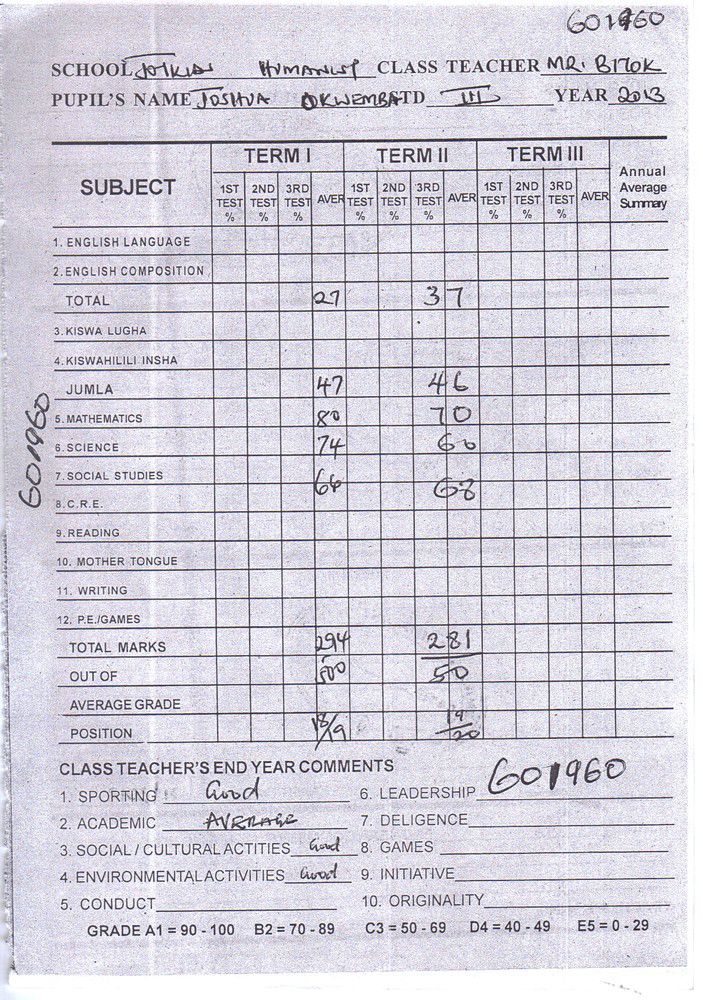 601960
SCHOOL JOYKIDS CLASS TEACHER MR. BITOK
PUPIL'S NAME JOSHUA OKWEMBA STD III YEAR 2013
SUBJECT TERM I TERM II TERM III Annual Average Summary
1ST TEST % 2ND TEST % 3RD TEST % AVER 1ST TEST % 2ND TEST % 3RD TEST % AVER 1ST TEST % 2ND TEST % 3RD TEST % AVER
1. ENGLISH LANGUAGE
2. ENGLISH COMPOSITION
TOTAL 27 37
3. KISWA LUGHA
4. KISWAHILILI INSHA
JUMLA 47 46
5. MATHEMATICS 80 70
6. SCIENCE 74 60
7. SOCIAL STUDIES 66 68
8. C.R.E.
9. READING
10. MOTHER TONGUE
11. WRITING
12. P.E./GAMES
TOTAL MARKS 294 281
OUT OF 500 50
AVERAGE GRADE
POSITION 18/19 19/20
601960
CLASS TEACHER'S END YEAR COMMENTS 601960
1. SPORTING Good 6. LEADERSHIP
2. ACADEMIC AVERAGE 7. DELIGENCE
3. SOCIAL / CULTURAL ACTITIES Good 8. GAMES
4. ENVIRONMENTAL ACTIVITIES Good 9. INITIATIVE
5. CONDUCT 10. ORIGINALITY
GRADE A1 = 90 - 100 B2 = 70 - 89 C3 = 50 - 69 D4 = 40 - 49 E5 = 0 - 29